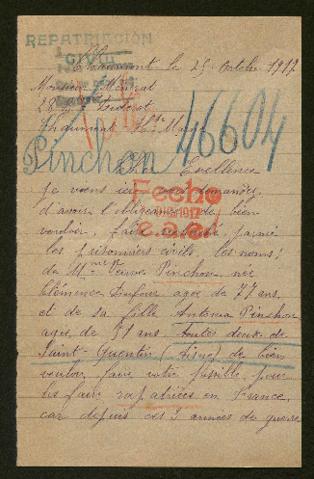 REPATRIACIÓN
CIVIL
Chaumont le 25 Octobre 1917
Monsieur Ménerat
28 Diderot
Chaumont Hte Marne
Pinchon 46604
Son Excellence
je viens ici vous demander
d'avoir l'obligeance de bien
vouloir faire parmi
les prisonniers civils les noms
de Mme Veuve Pinchon née
Clémence Dufour agée de 77 ans
et de sa fille Antonia Pinchon
agée de 51 ans toutes deux de
Saint-Quentin (Aisne) de bien
vouloir faire votre possible pour
les faire rapatriées en France
car depuis ces 3 années de guerre
Fecho
1917